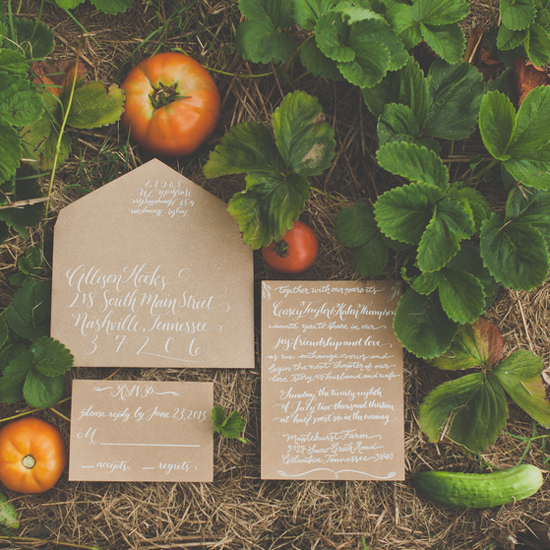 Allison Hooks
218 South Main Street
Nashville, Tennessee
37206
RSVP
please reply by June 23, 2013
M
accepts regrets
together with our parents
Casey Taylor & Katen Thompson
invite you to share in our
joy, friendship and love
as we exchange vows and
begin the next chapter of our
love story as husband and wife
Sunday the twenty eighth
of July two thousand thirteen
at half past six in the evening
Maplehurst Farm
Creek Road
Columbia Tennessee